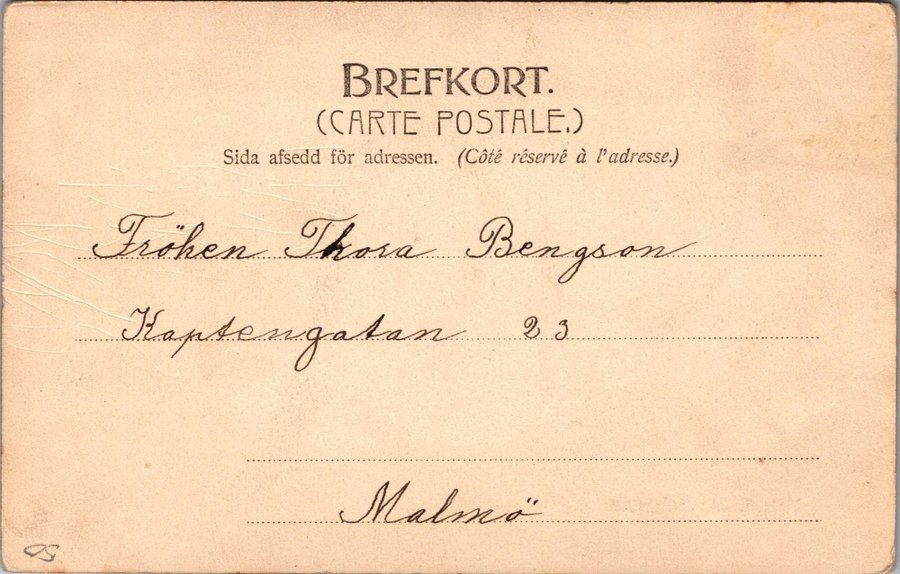 BREFKORT.
(CARTE POSTALE.)
Sida afsedd för adressen. (Côté réservé à l'adresse.)
Fröken Thora Bengson
Kaptengatan 23
Malmö